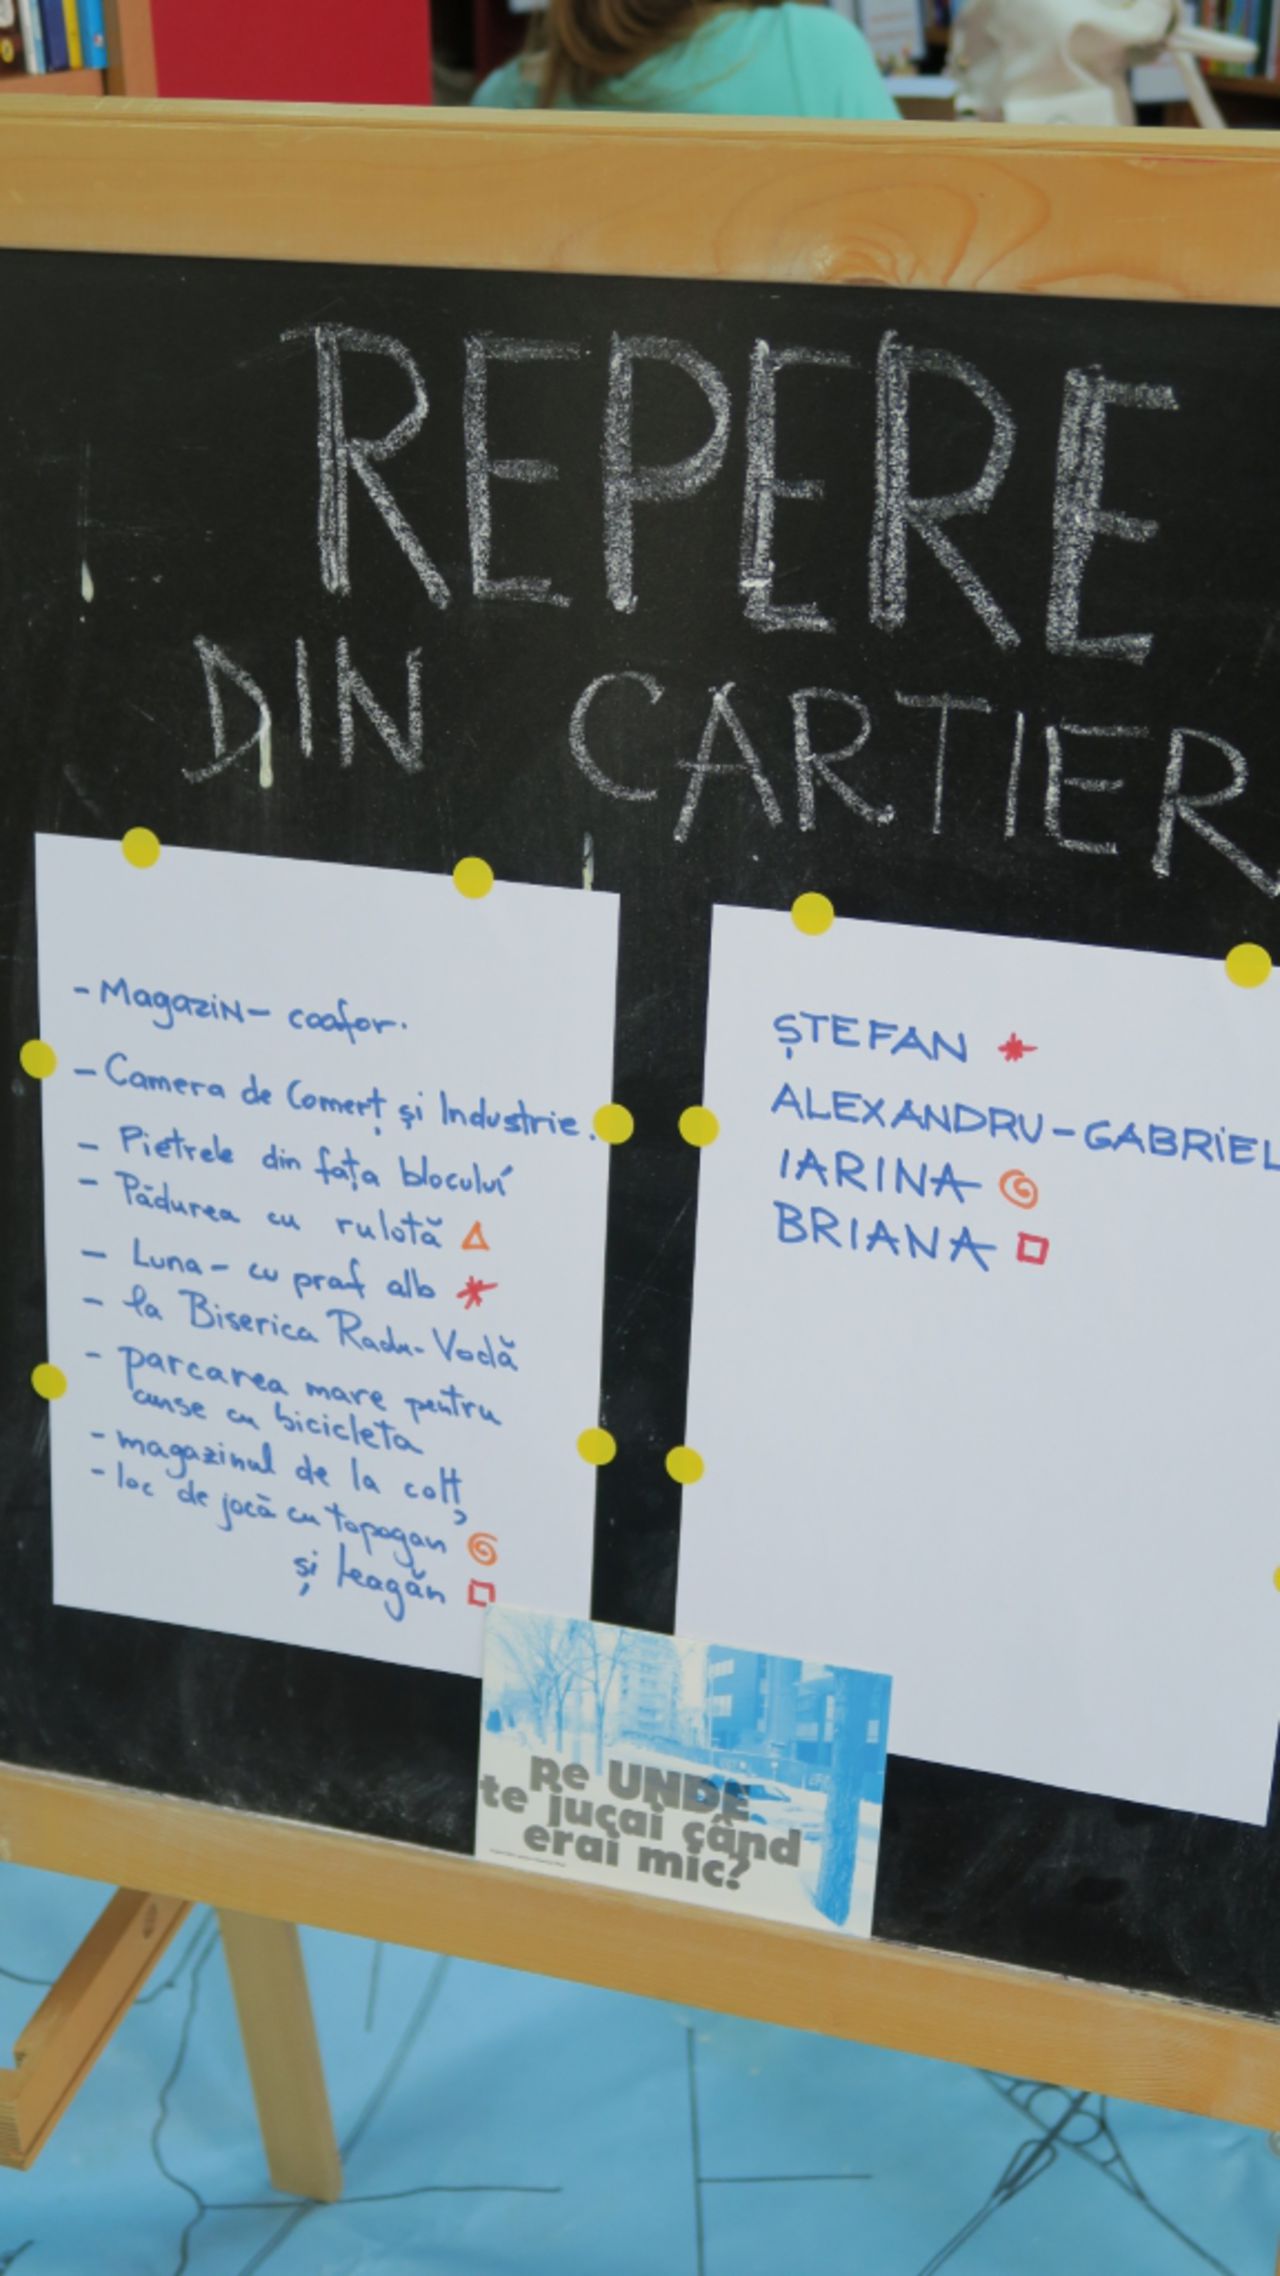 REPERE
DIN CARTIER
- Magazin - coafor.
- Camera de Comerț și Industrie.
- Pietrele din fața blocului
- Pădurea cu rulotă
- Luna - cu praf alb
- la Biserica Radu-Vodă
- parcarea mare pentru
curse cu bicicleta
- magazinul de la colț
- loc de jocă cu topogan
și leagăn
ȘTEFAN
ALEXANDRU-GABRIEL
IARINA
BRIANA
pe UNDE
te jucai când
erai mic?